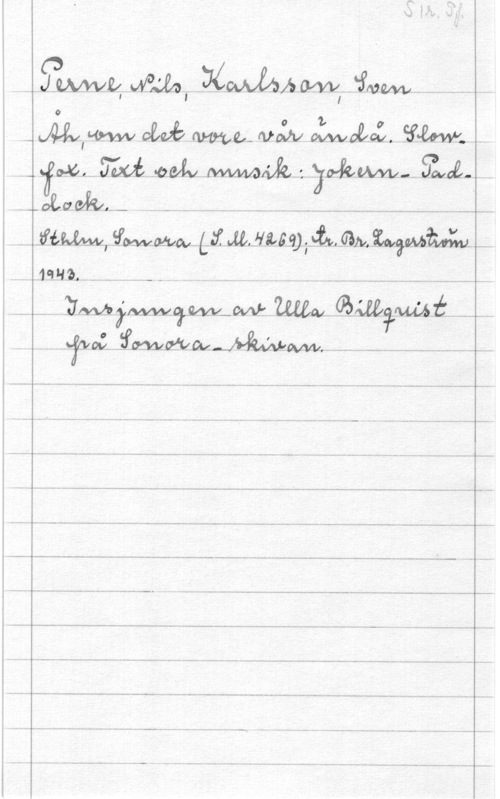 S 1 r. Pf.
Perne, Nils, Karlsson, Sven
Åh, om det vore vår ändå. Slow-
fox. Text och musik: Jokern - Pad-
dock.
Sthlm, Sonora (S.M. 4269); tr. Br. Lagerström
1943.
Insjungen av Ulla Billquist
på Sonora-skivan.